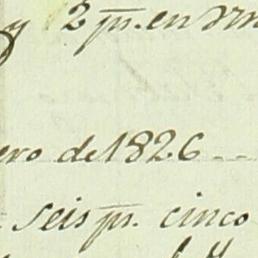 y 2 ps. en
ero de 1826
seis ps. cinco